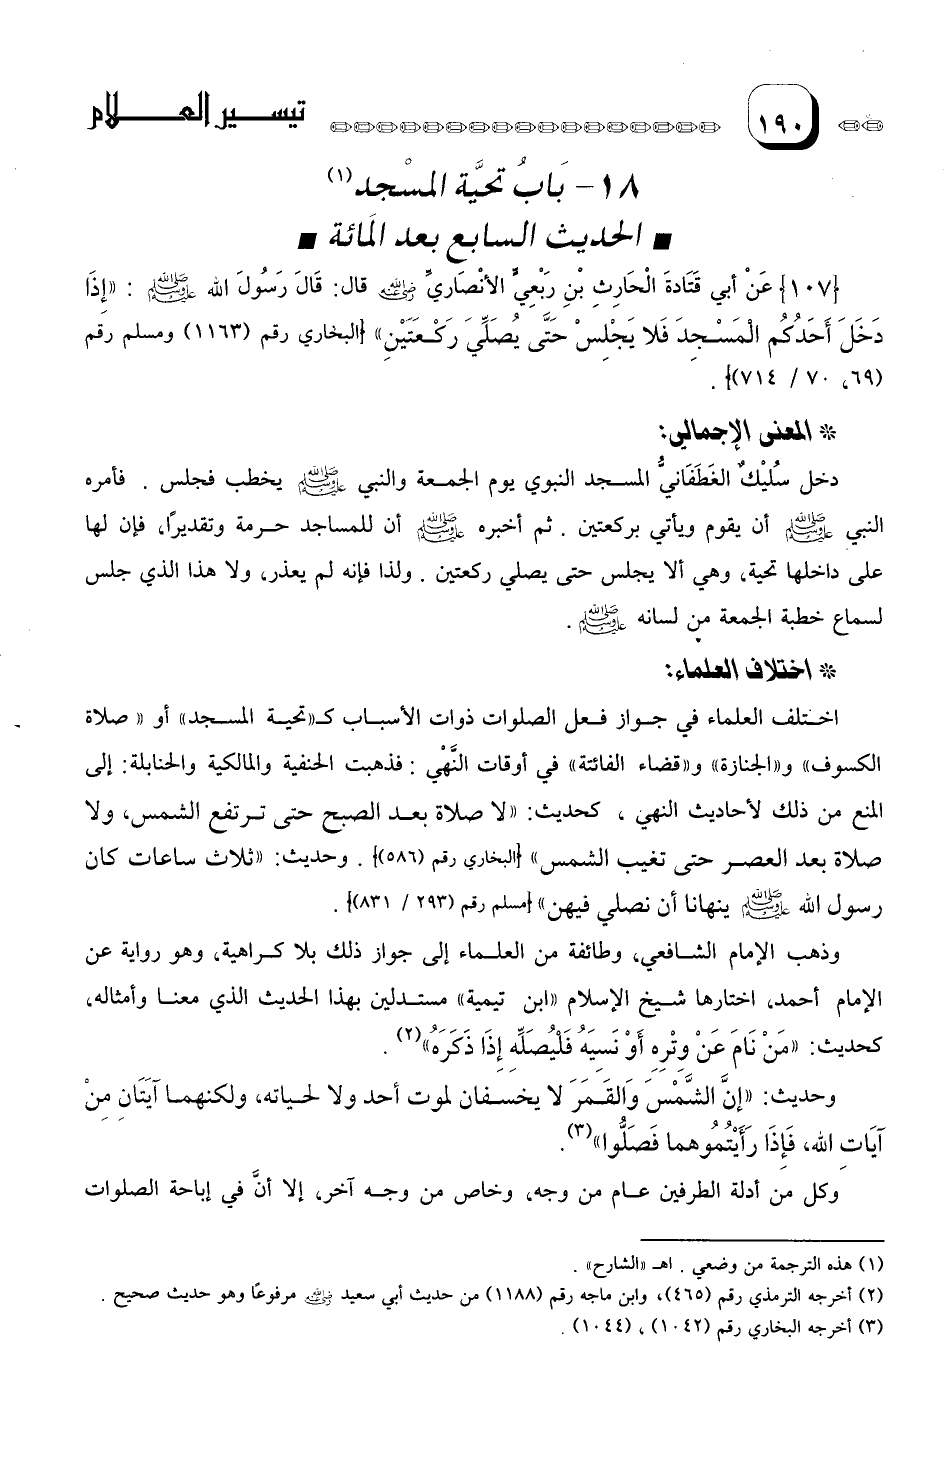 ١٩٠ تيسير العلام
١٨- بَابُ تحيَّة المسْجد(١)
■ الحديث السابع بعد المَائة ■
{١٠٧} عَنْ أبي قَتَادةَ الْحَارثِ بْنِ رَبْعيٍّ الأنْصَاريِّ رضي الله عنه قال: قَالَ رَسُولَ الله ﷺ : «إذَا
دَخَلَ أحَدُكُم الْمَسْجدَ فَلا يَجْلِسْ حَتَّى يُصَلِّيَ رَكْعَتَيْنِ» {البخاري رقم (١١٦٣) ومسلم رقم
(٦٩، ٧٠ / ٧١٤)} .
* المعنى الإجمالي:
دخل سُلَيْكٌ الغَطَفَانيُّ المسجد النبوي يوم الجمعة والنبي ﷺ يخطب فجلس . فأمره
النبي ﷺ أن يقوم ويأتي بركعتين . ثم أخبره ﷺ أن للمساجد حرمة وتقديرًا، فإن لها
على داخلها تحية، وهي ألا يجلس حتى يصلي ركعتين . ولذا فإنه لم يعذر، ولا هذا الذي جلس
لسماع خطبة الجمعة من لسانه ﷺ .
* اختلاف العلماء:
اختلف العلماء في جواز فعل الصلوات ذوات الأسباب كـ«تحية المسجد» أو « صلاة
الكسوف» و«الجنازة» و«قضاء الفائتة» في أوقات النَّهْي : فذهبت الحنفية والمالكية والحنابلة: إلى
المنع من ذلك لأحاديث النهي ، كحديث: «لا صلاة بعد الصبح حتى ترتفع الشمس، ولا
صلاة بعد العصر حتى تغيب الشمس» {البخاري رقم (٥٨٦)} . وحديث: «ثلاث ساعات كان
رسول الله ﷺ ينهانا أن نصلي فيهن» {مسلم رقم (٢٩٣ / ٨٣١)} .
وذهب الإمام الشافعي، وطائفة من العلماء إلى جواز ذلك بلا كراهية، وهو رواية عن
الإمام أحمد، اختارها شيخ الإسلام «ابن تيمية» مستدلين بهذا الحديث الذي معنا وأمثاله،
كحديث: «مَنْ نَامَ عَنْ وتْرِه أوْ نَسيَهُ فَلْيُصَلِّه إذَا ذَكَرَهُ»(٢) .
وحديث: «إنَّ الشَّمْسَ وَالقَمَرَ لا يخسفان لموت أحد ولا لحياته، ولكنهما آيَتَان منْ
آيَات الله، فَإذَا رَأيْتُمُوهما فَصَلُّوا»(٣).
وكل من أدلة الطرفين عام من وجه، وخاص من وجه آخر، إلا أنَّ في إباحة الصلوات
(١) هذه الترجمة من وضعي . اهـ «الشارح» .
(٢) أخرجه الترمذي رقم (٤٦٥)، وابن ماجه رقم (١١٨٨) من حديث أبي سعيد رضي الله عنه مرفوعًا وهو حديث صحيح .
(٣) أخرجه البخاري رقم (١٠٤٢) ، (١٠٤٤) .